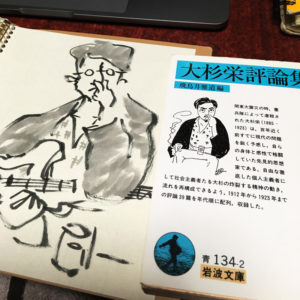 大杉栄評論集
飛鳥井雅道編
関東大震災の時、憲
兵隊によって虐殺さ
れた大杉栄(1885－
1923)は、百年近く
前すでに現代の問題
を鋭く予感し、自ら
の自体と感性で格闘
していた先見的思想
家である。自由を徹
底した個人主義者に
して社会主義者たる大杉の炸裂する精神の動き、
流れを再構成できるよう、1912年から1923年まで
の評論39篇を年代順に配列、収録した。
青 134-2
岩波文庫